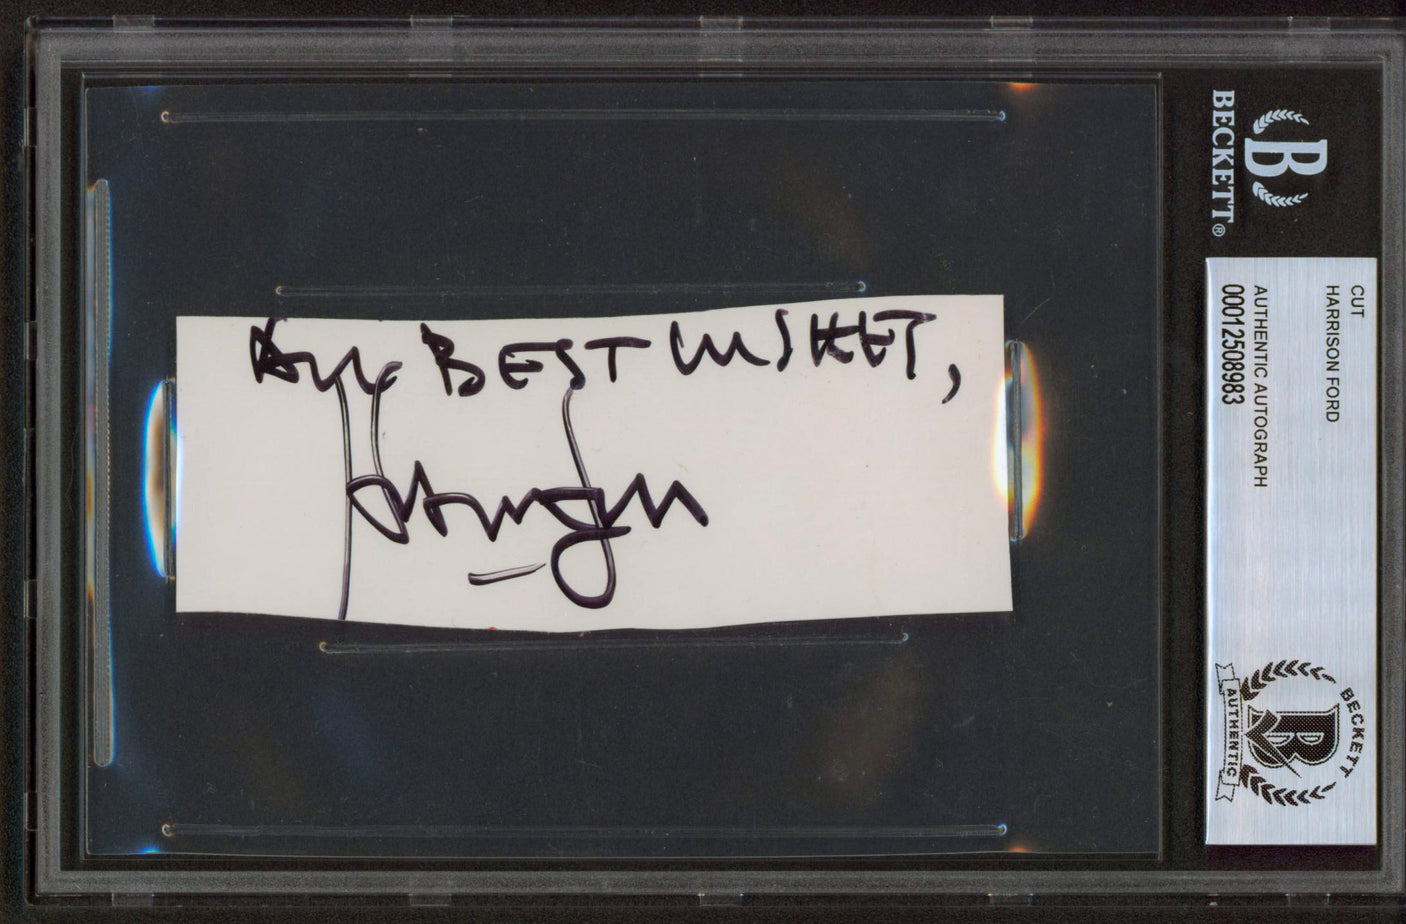 ALL BEST WISHES,
BECKETT®
B
CUT
HARRISON FORD
AUTHENTIC AUTOGRAPH
00012508983
BECKETT
B
AUTHENTIC